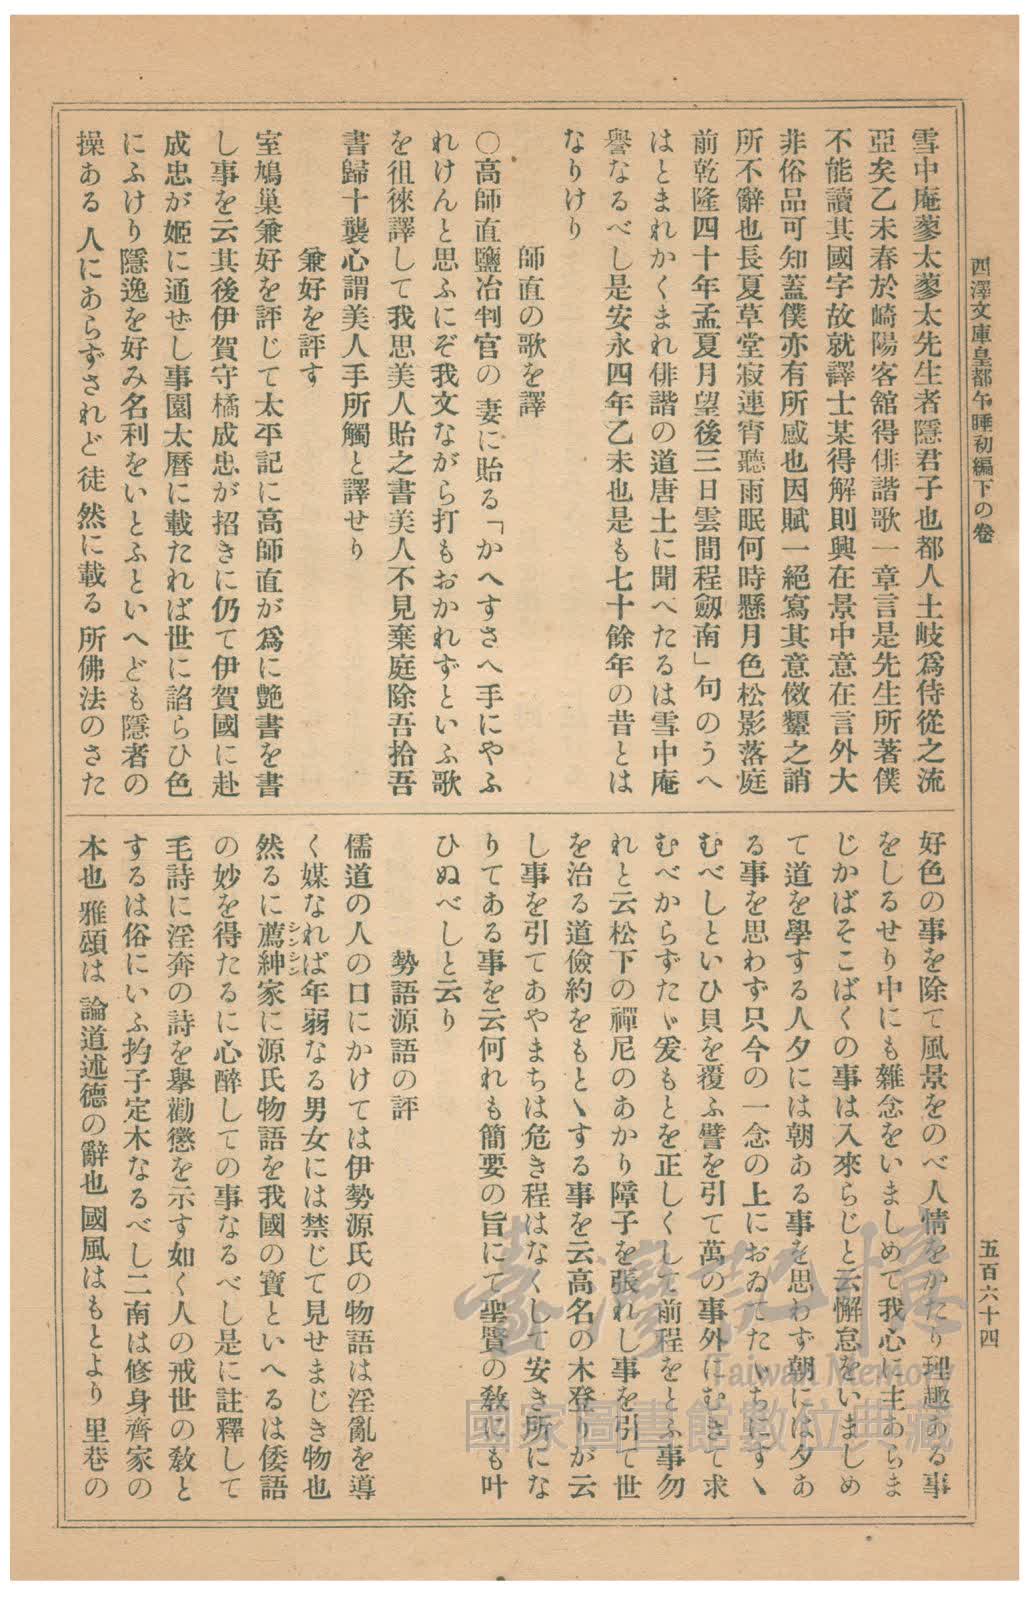 西澤文庫皇都午睡初編下の卷
五百六十四
雪中庵蓼太蓼太先生者隱君子也都人土岐爲侍從之流
亞矣乙未春於崎陽客舘得俳諧歌一章言是先生所著僕
不能讀其國字故就譯士某得解則興在景中意在言外大
非俗品可知蓋僕亦有所感也因賦一絕寫其意傚顰之誚
所不辭也長夏草堂寂連宵聽雨眠何時懸月色松影落庭
前乾隆四十年孟夏月望後三日雲間程劔南」句のうへ
はとまれかくまれ俳諧の道唐土に聞へたるは雪中庵
譽なるべし是安永四年乙未也是も七十餘年の昔とは
なりけり
師直の歌を譯
〇高師直鹽冶判官の妻に貽る「かへすさへ手にやふ
れけんと思ふにぞ我文ながら打もおかれずといふ歌
を徂徠譯して我思美人貽之書美人不見棄庭除吾拾吾
書歸十襲心謂美人手所觸と譯せり
兼好を評す
室鳩巢兼好を評じて太平記に高師直が爲に艶書を書
し事を云其後伊賀守橘成忠が招きに仍て伊賀國に赴
成忠が姬に通ぜし事園太曆に載たれば世に諂らひ色
にふけり隱逸を好み名利をいとふといへども隱者の
操ある人にあらずされど徒然に載る所佛法のさた
好色の事を除て風景をのべ人情をかたり理趣ある事
をしるせり中にも雜念をいましめて我心に主あらま
じかばそこばくの事は入來らじと云懈怠をいましめ
て道を學する人夕には朝ある事を思わず朝には夕あ
る事を思わず只今の一念の上におゐてたゝちにすゝ
むべしといひ貝を覆ふ譬を引て萬の事外にむきて求
むべからずたゞ爰もとを正しくして前程をとふ事勿
れと云松下の禪尼のあかり障子を張れし事を引て世
を治る道儉約をもとゝする事を云高名の木登りが云
し事を引てあやまちは危き程はなくして安き所にな
りてある事を云何れも簡要の旨にて聖賢の敎にも叶
ひぬべしと云り
勢語源語の評
儒道の人の口にかけては伊勢源氏の物語は淫亂を導
く媒なれば年弱なる男女には禁じて見せまじき物也
然るに薦紳家に源氏物語を我國の寶といへるは倭語
シンシン
の妙を得たるに心醉しての事なるべし是に註釋して
毛詩に淫奔の詩を擧勸懲を示す如く人の戒世の敎と
するは俗にいふ杓子定木なるべし二南は修身齊家の
本也雅頌は論道述德の辭也國風はもとより里巷の
臺灣記憶
Taiwan Memory
國家圖書館數位典藏